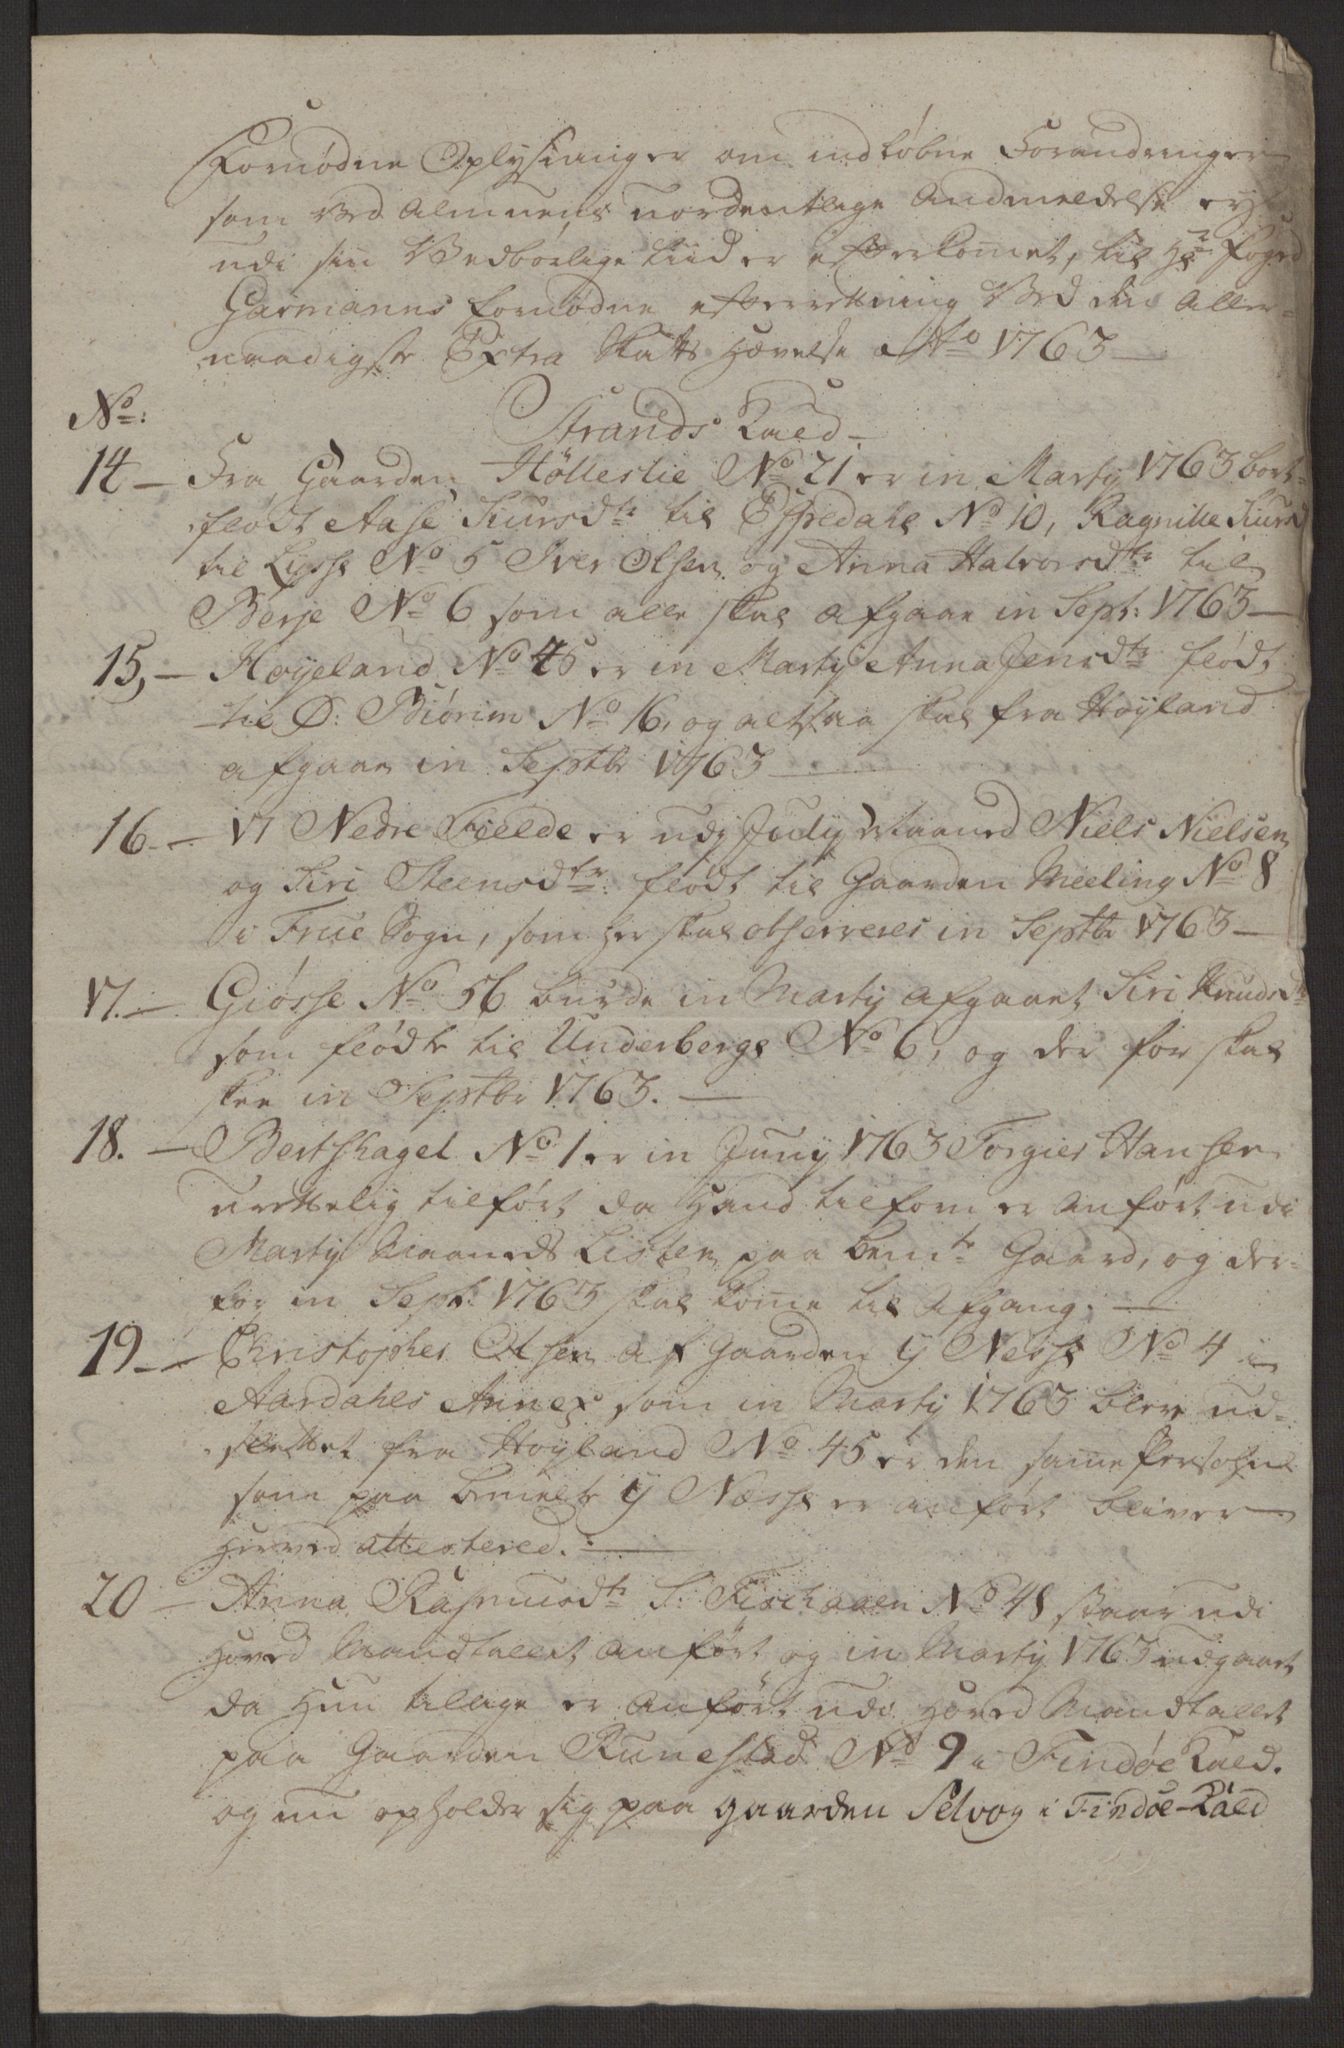 Fornødne Oplysninger om indløbne Forandringer
som ved Almuens uordentlige Andmeldelse ey
udi sin Vedbørlige tiid er efterkomet, til Hr Foged
Garmanns fornødne efterretning Ved den Aller-
naadigste Extra Skatts Hævelse Ao 1763
No:
Strands Kald
14 - Fra Gaarden Hölleslie No 21 er in Marty 1763 bort-
flødt Aase Siursdtr til Espedahl No 10, Ragnille Siursd
til Liosse No 5 Iver Olsen og Anna Halvorsdtr til
Berje No 6 som alle skal afgaae in Sept: 1763
15, - Høyeland No 45 er in Marty Anna Jensdtr flødt
til Ø: Biörim No 16, og altsaa skal fra Høyland
afgaae in Septbr 1763
16. - Nedre Fielde er udj July Maaned Niels Nielsen
og Siri Steensdtr flødt til Gaarden Meeling No 8
i Frue Sogn, som her skal observeres in Septbr 1763
17. - Giösse No 56 burde in Marty afgaaet Siri Knudsd
som flødte til Underberge No 6, og der for skal
skee in Septbr 1763.
18. - Bertshagel No 1 er in Juny 1763 Torgier Hansen
urettelig tilført da Hand tilforn er Anført udi
Marty Maaneds Listen paa bemte Gaard, og der-
for in Sept: 1763 skal kome til Afgang.
19 - Christopher Olsen af Gaarden y Nesse No 4 i
Aardahls Annex som in Marty 1763 blev ud-
slettet fra Høyland No 45 er den same Persohn
som paa bemelte y Nesse er anført bliver
herved attestered.
20 - Anna Rasmusdtr S: Fischaaen No 48 staar udi
Hoved Mandtallet anført og in Marty 1763 udgaaet
da Hun tillige er Anført udi Hoved Mandtallet
paa Gaarden Runestad No 9 i Findöe Kald.
og nu opholder sig paa gaarden Selvog i Findöe Kald